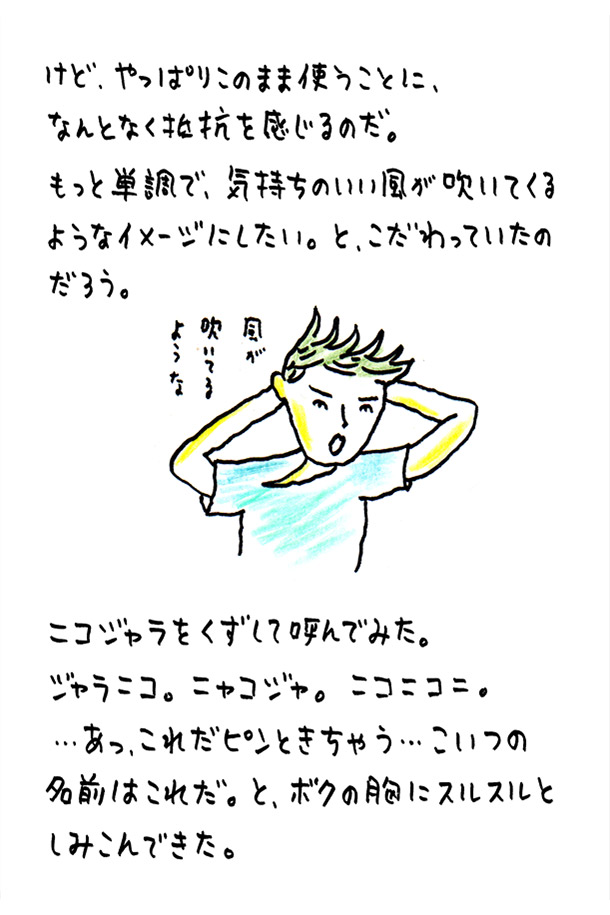 けど、やっぱりこのまま使うことに、
なんとなく抵抗を感じるのだ。
もっと単調で、気持ちのいい風が吹いてくる
ようなイメージにしたい。と、こだわっていたの
だろう。
風が
吹いてる
ような
ニコジャラをくずして呼んでみた。
ジャラニコ。ニャコジャ。ニコニコニ。
…あっ、これだピンときちゃう…こいつの
名前はこれだ。と、ボクの胸にスルスルと
しみこんできた。